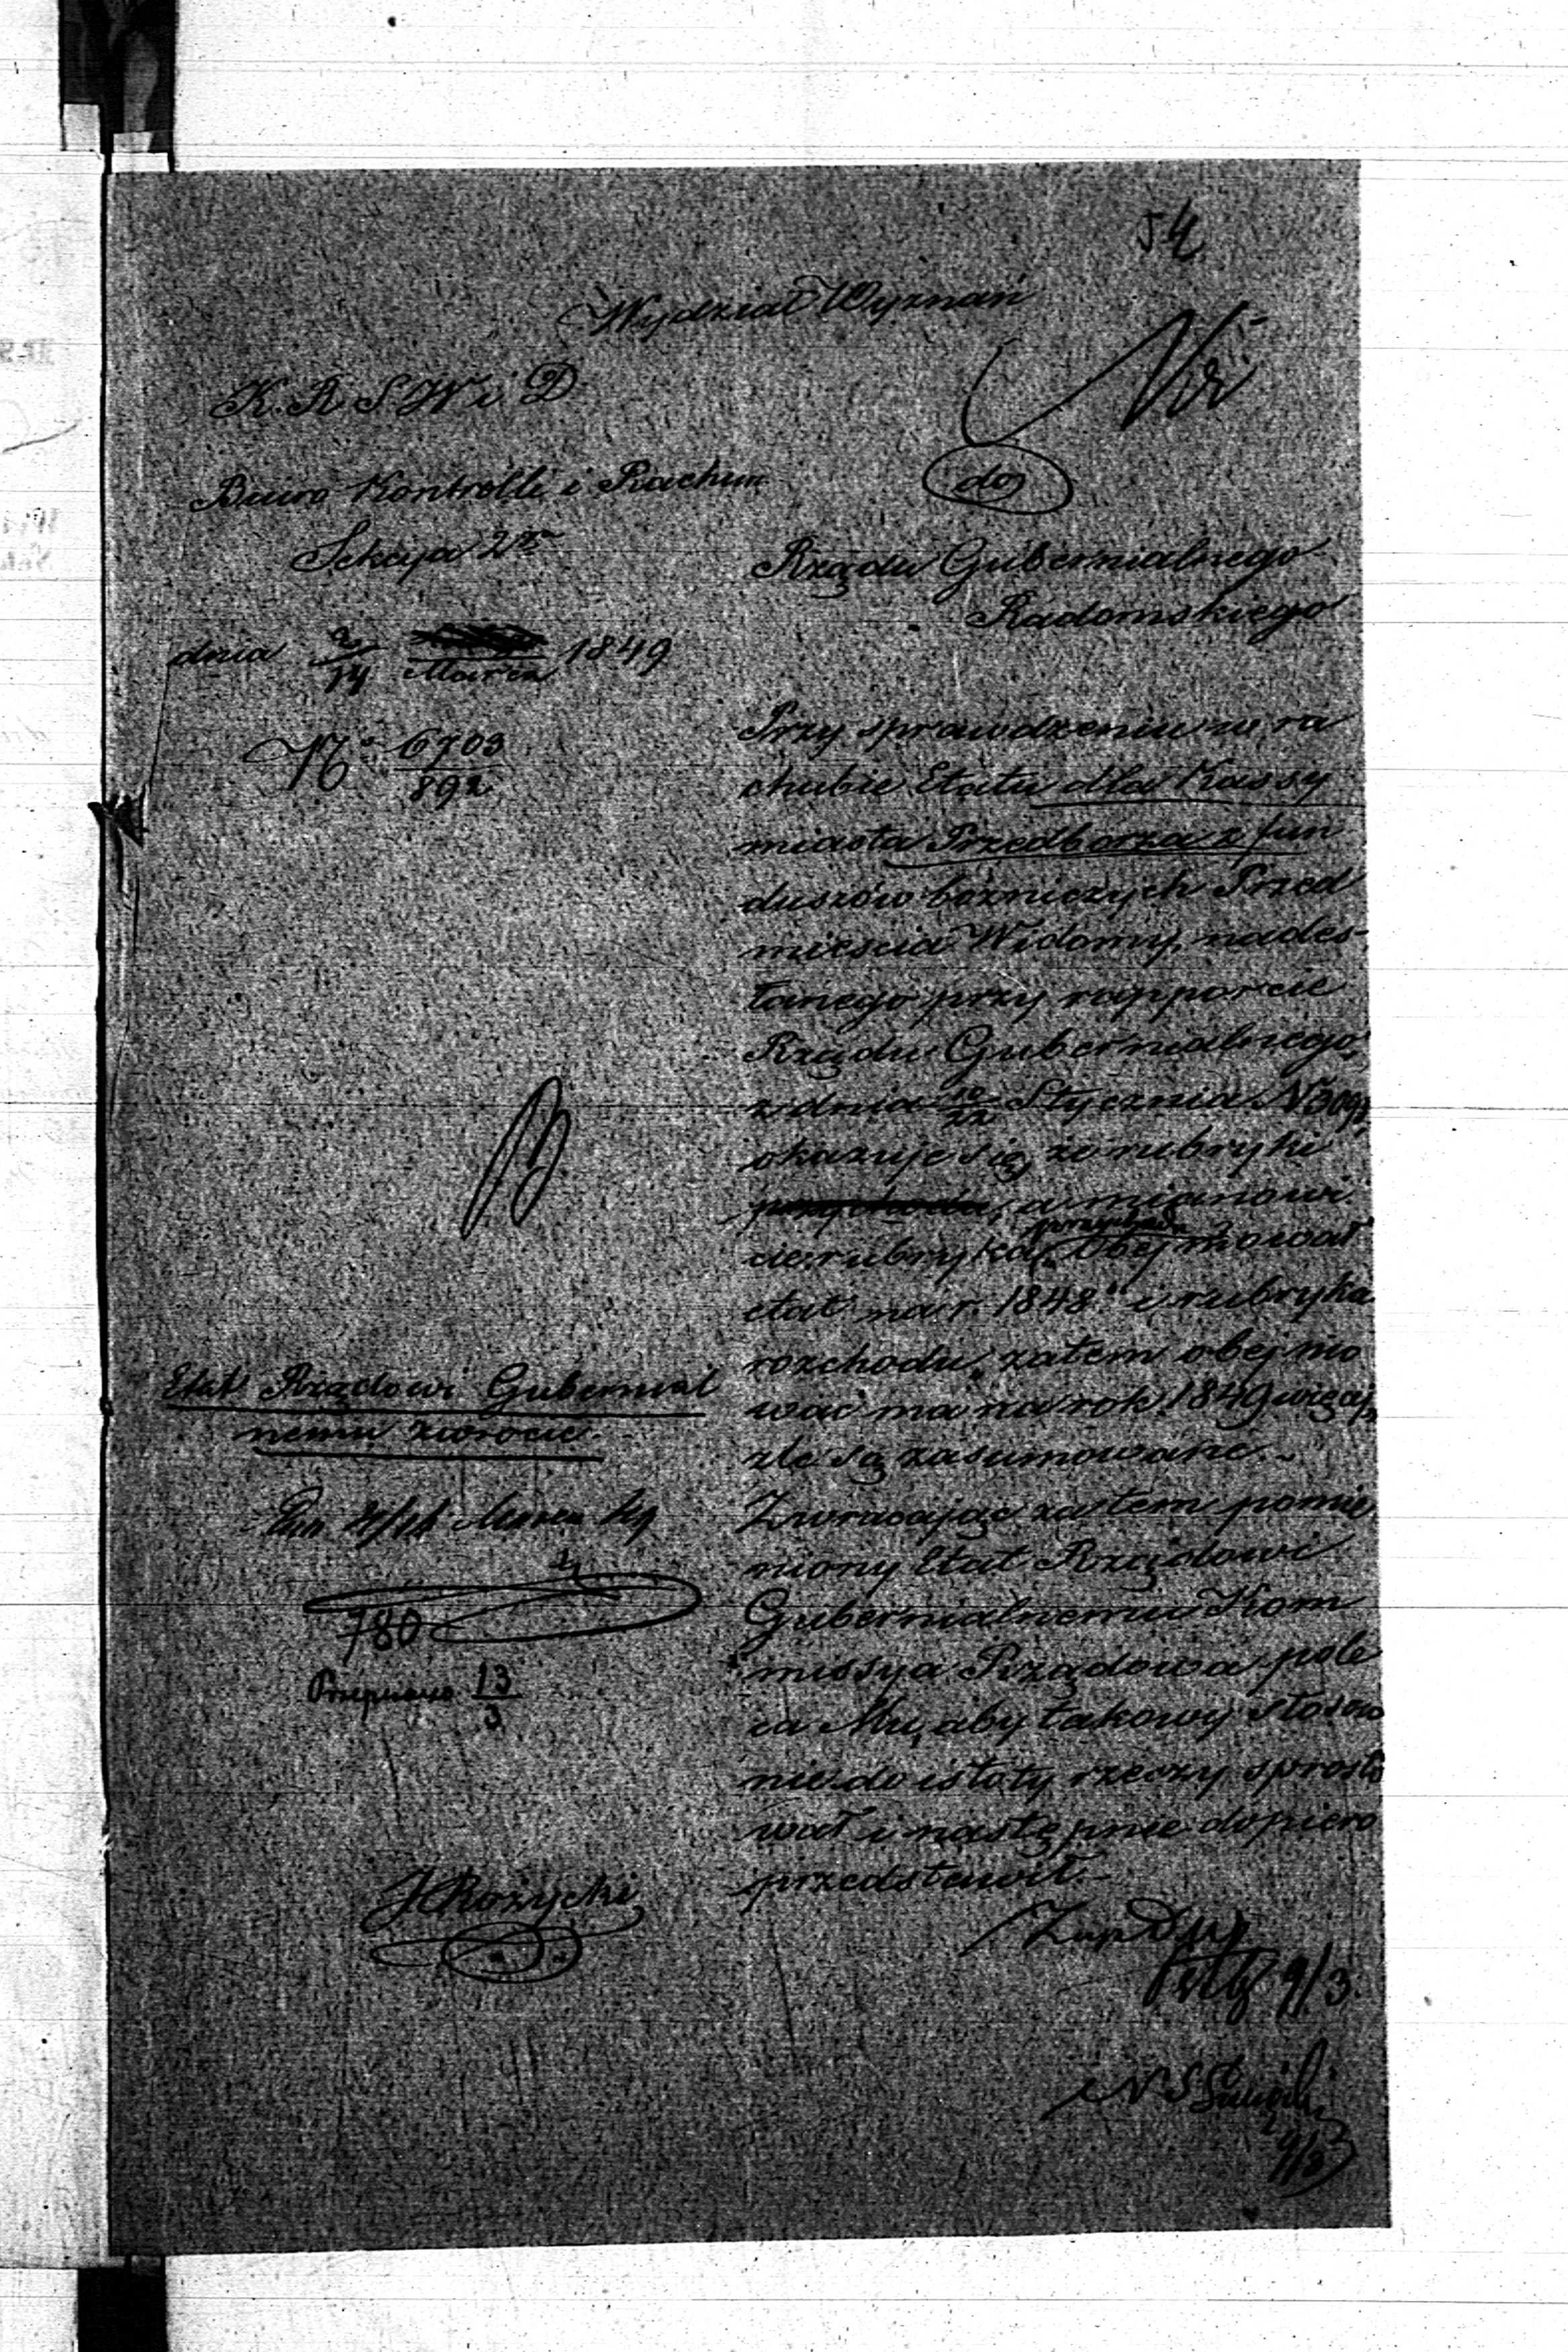 54
Wydział Wyznań
K. R. S. W i D
do
Biuro Kontrolli i Rachun
Sekcya 2ga
Rządu Gubernialnego
Radomskiego
dnia 2/14 Marca 1849
No 6703/892
Przy sprawdzeniu w ra
chubie Etatu dla Kassy
miasta Przedborza z fun
duszów bożniczych Przed
mieścia Widomy, nades-
łanego przy rapporcie
Rządu Gubernialnego
z dnia 10/22 Stycznia N
okazuje się, że rubryki
a mianowi
cie: rubryka przychodu „Obejmował
etat na r. 1848“ i rubryka
rozchodu „zatem obejmo
wać ma na rok 1849 więcej“
źle są zasumowane.-
Zwracając zatem pomie
niony Etat Rządowi
Gubernialnemu Kom
missya Rządowa pole
ca Mu, aby takowy stosow
nie do istoty rzeczy sprosto
wał i następnie dopiero
przedstawił.-
Etat Rządowi Gubernial
nemu zwrócić.
Marca
780
Przepisano 13/3
J Rożycki
9/3
9/3